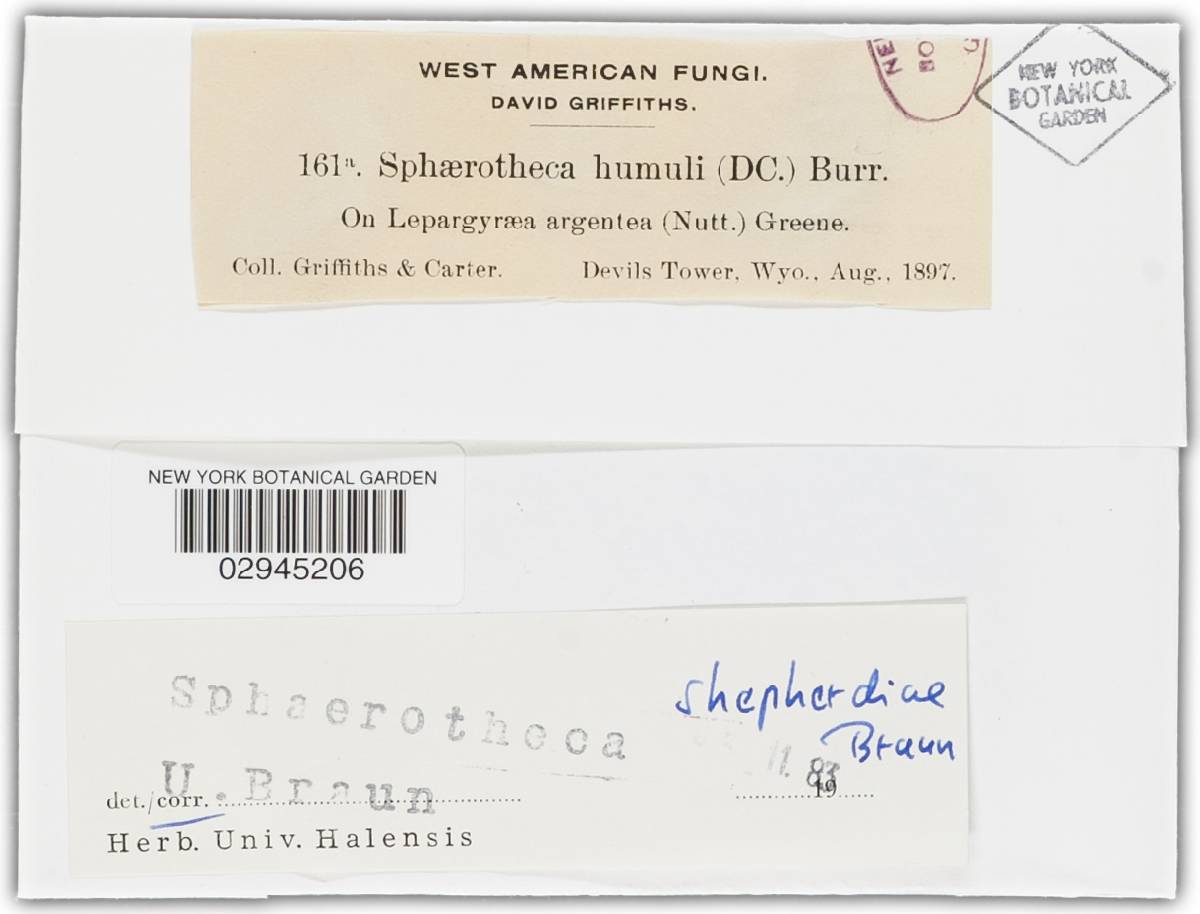 WEST AMERICAN FUNGI.
DAVID GRIFFITHS.
NEW YORK
BOTANICAL
GARDEN
161ª. Sphærotheca humuli (DC.) Burr.
On Lepargyræa argentea (Nutt.) Greene.
Coll. Griffiths & Carter. Devils Tower, Wyo., Aug., 1897.
NEW YORK BOTANICAL GARDEN
02945206
Sphaerotheca shepherdiae
Braun
U. Braun 11. 83
det./corr. 19
Herb. Univ. Halensis